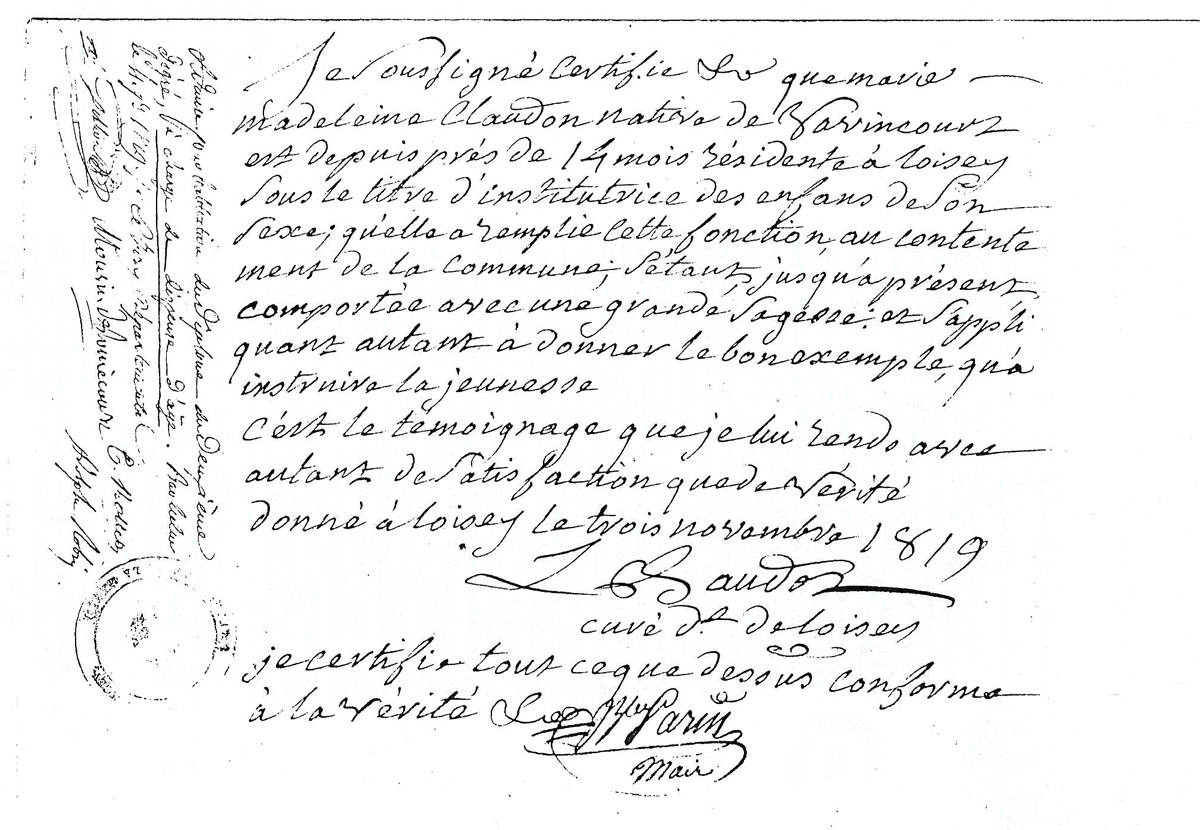 Je Soussigné Certifie que marie
madeleine Claudon native de Vavincourt
est depuis prés de 14 mois résidente à loisey
Sous le titre d'institutrice des enfans de Son
Sexe; quélle a remplie Cette fonction, au contente
ment de la Commune, S'étant, jusqu'a présent,
comportée avec une grande Sagesse: et S'appli
quant autant à donner le bon exemple, qu'a
instruire la jeunesse
C'ést le témoignage que je lui rends avec
autant de Satisfaction que de Vérité
donné à loisey le trois novembre 1819
Baudot
curé dt. de loisey
je certifie tout ce que dessus conforme
à la vérité Parin
Mair
du Diplome du Deuxième
Degré, à charge de dispense d'âge.
le 4 1819